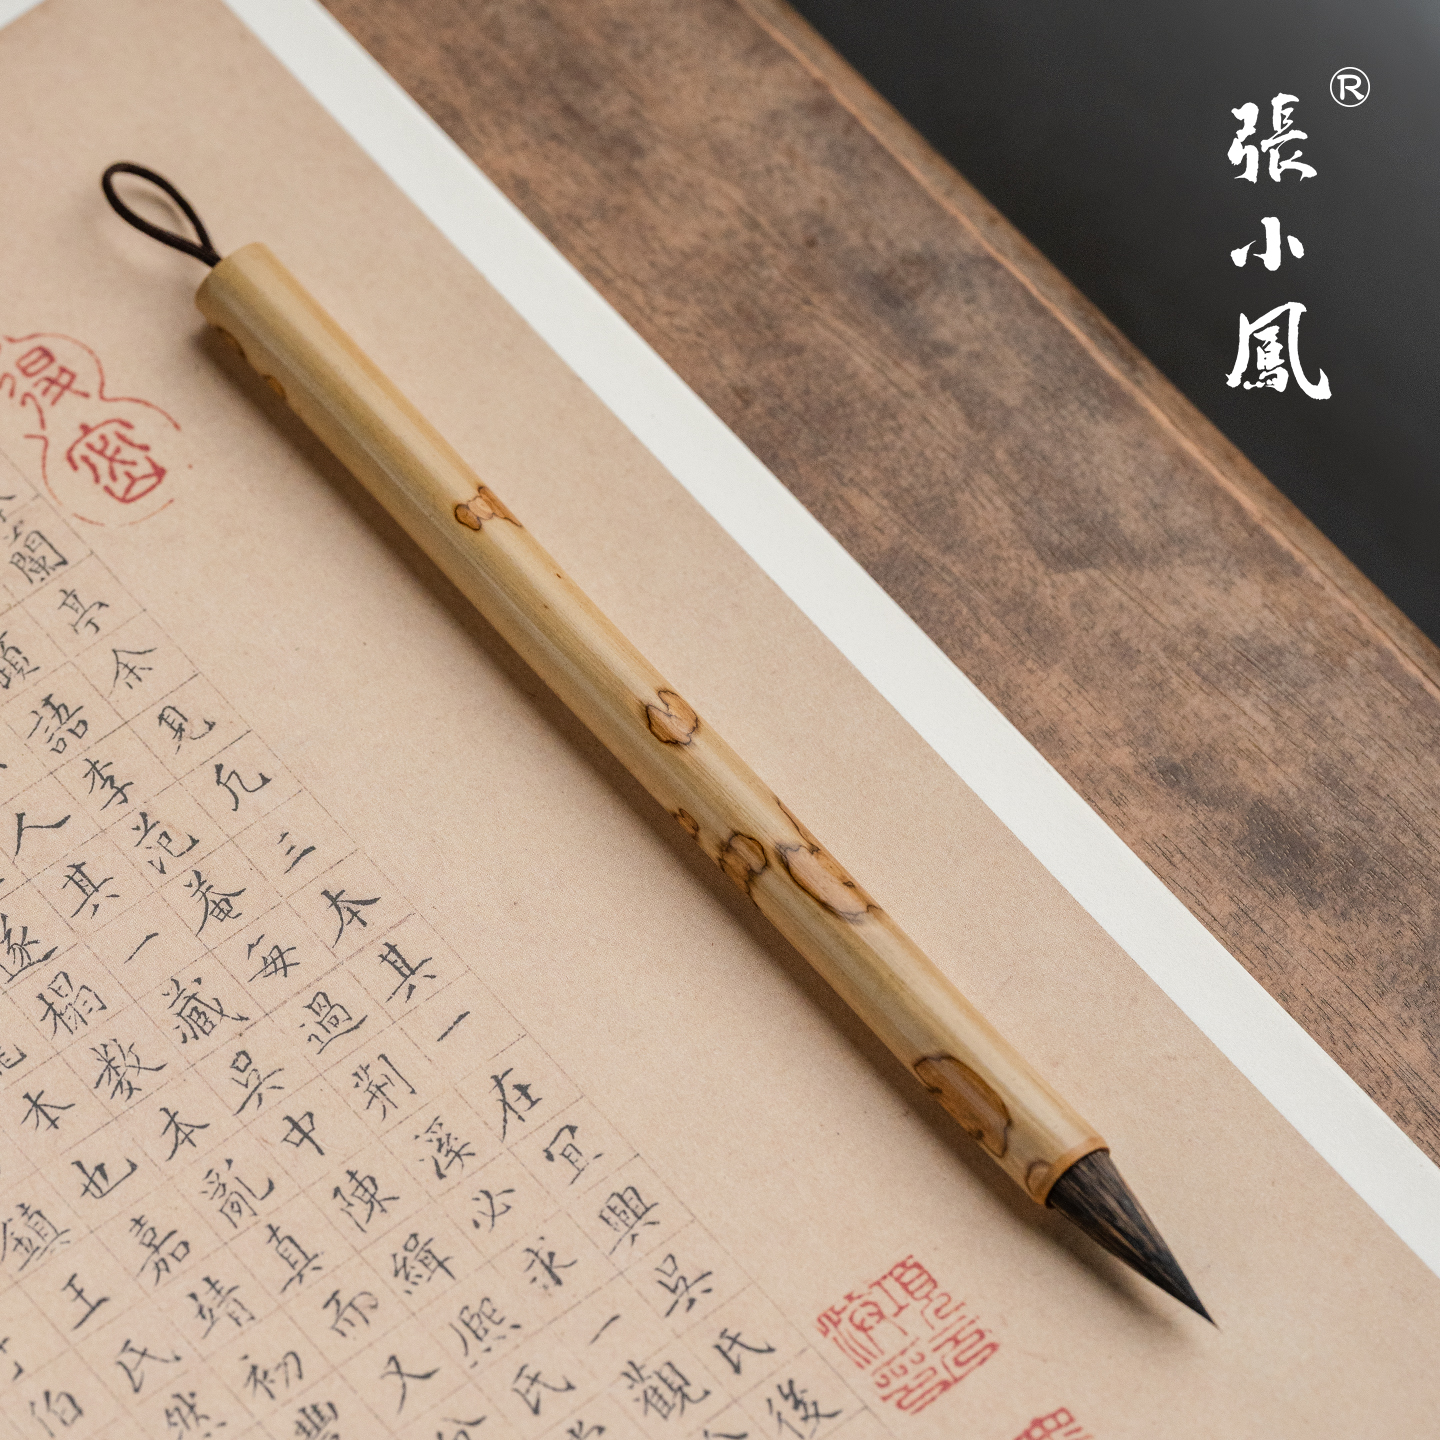 張小鳳
®
得密
蘭亭余見凡三本其一在宜興吳氏後
題語李范菴每過荆溪必求一觀
人其一藏吳中陳緝熙氏
遂榻数本亂真而又
本也嘉靖初豐
鎮王氏然
伯